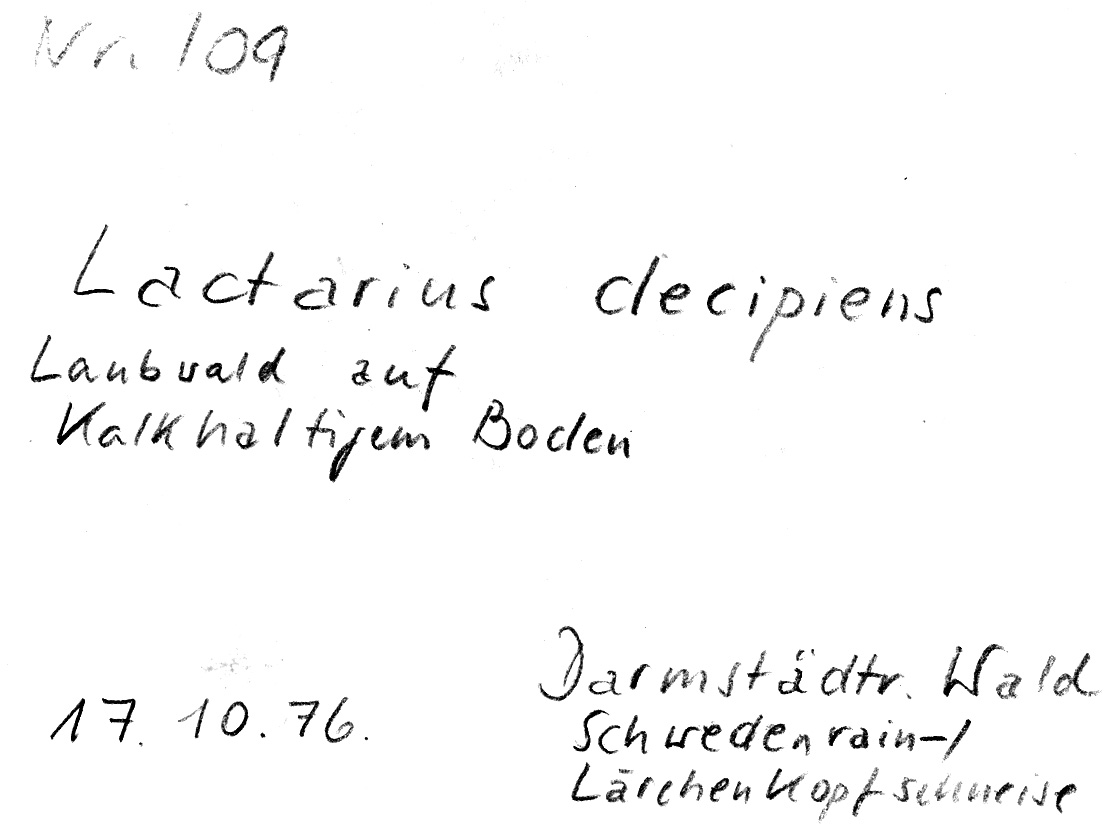 Nr. 109
Lactarius decipiens
Laubwald auf
Kalkhaltigem Boden
17. 10. 76.
Darmstädtr. Wald
Schwedenrain-/
Lärchenkopfschneise